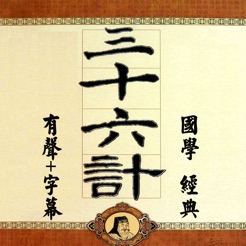 三十六計
國學 經典
有聲+字幕